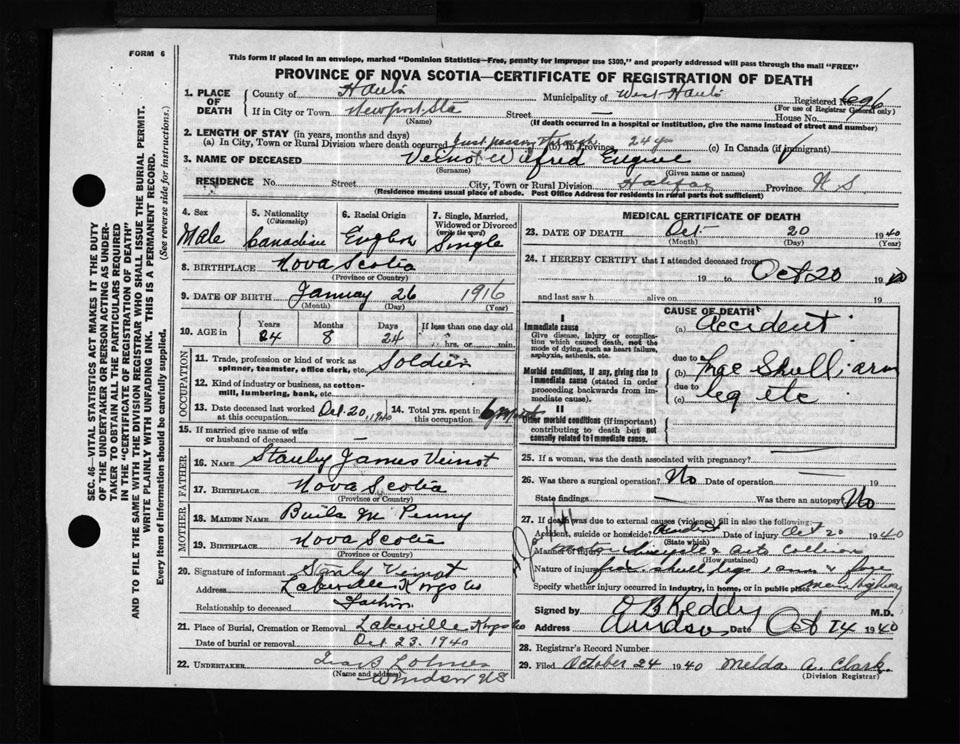 FORM 6
This form if placed in an envelope, marked "Dominion Statistics—Free, penalty for improper use $300," and properly addressed will pass through the mail "FREE"
PROVINCE OF NOVA SCOTIA—CERTIFICATE OF REGISTRATION OF DEATH
SEC. 46—VITAL STATISTICS ACT MAKES IT THE DUTY OF THE UNDERTAKER OR PERSON ACTING AS UNDERTAKER TO OBTAIN ALL THE PARTICULARS REQUIRED IN THE "CERTIFICATE OF REGISTRATION OF DEATH" AND TO FILE THE SAME WITH THE DIVISION REGISTRAR WHO SHALL ISSUE THE BURIAL PERMIT.
WRITE PLAINLY WITH UNFADING INK. THIS IS A PERMANENT RECORD.
Every item of information should be carefully supplied. (See reverse side for instructions.)
1. PLACE OF DEATH County of Hants Municipality of West Hants Registered No. 696
(For use of Registrar General only)
If in City or Town Newport Sta Street — House No.
(Name) (If death occurred in a hospital or institution, give the name instead of street and number)
2. LENGTH OF STAY (in years, months and days)
(a) In City, Town or Rural Division where death occurred Just passing through (b) In Province 24 yrs (c) In Canada (if immigrant)
3. NAME OF DECEASED Veinot Wilfred Eugine
(Surname) (Given name or names)
RESIDENCE No. Street City, Town or Rural Division Halifax Province N S
Residence means usual place of abode. Post Office Address for residents in rural parts not sufficient)
4. Sex Male
5. Nationality (Citizenship) Canadian
6. Racial Origin English
7. Single, Married, Widowed or Divorced (write the word) Single
8. BIRTHPLACE Nova Scotia
(Province or Country)
9. DATE OF BIRTH January 26 1916
(Month) (Day) (Year)
10. AGE in Years 24 Months 8 Days 24 If less than one day old hrs. or min.
OCCUPATION
11. Trade, profession or kind of work as spinner, teamster, office clerk, etc. Soldier
12. Kind of industry or business, as cotton-mill, lumbering, bank, etc.
13. Date deceased last worked at this occupation Oct. 20, 1940 14. Total yrs. spent in this occupation 6
15. If married give name of wife or husband of deceased —
FATHER
16. NAME Stanley James Veinot
17. BIRTHPLACE Nova Scotia
(Province or Country)
MOTHER
18. MAIDEN NAME Buila M Penny
19. BIRTHPLACE Nova Scotia
(Province or Country)
20. Signature of informant Stanley Veinot
Address Lakeville Kings Co
Relationship to deceased Father
21. Place of Burial, Cremation or Removal Lakeville Kings Co
Date of burial or removal Oct 23. 1940
22. UNDERTAKER
(Name and address) Windsor NS
MEDICAL CERTIFICATE OF DEATH
23. DATE OF DEATH Oct 20 1940
(Month) (Day) (Year)
24. I HEREBY CERTIFY that I attended deceased from
19 to Oct 20 1940
and last saw h alive on 19
CAUSE OF DEATH
I
Immediate cause
Give disease, injury or complication which caused death, not the mode of dying, such as heart failure, asphyxia, asthenia, etc.
(a) Accident
due to
Morbid conditions, if any, giving rise to immediate cause (stated in order proceeding backwards from immediate cause).
(b) Frac Skull, arm
due to
(c) leg etc
II
Other morbid conditions (if important) contributing to death but not causally related to immediate cause.
25. If a woman, was the death associated with pregnancy?
26. Was there a surgical operation? No Date of operation 19
State findings — Was there an autopsy? No
27. If death was due to external causes (violence) fill in also the following:
Accident, suicide or homicide? Accident Date of injury Oct 20 1940
(State which)
Manner of injury & auto Collision
(How sustained)
Nature of injury skull leg arm
Specify whether injury occurred in industry, in home, or in public place Highway
Signed by O B Keddy M.D.
Address Windsor Date Oct 24 1940
28. Registrar's Record Number
29. Filed October 24 1940 Melda A. Clark
(Division Registrar)